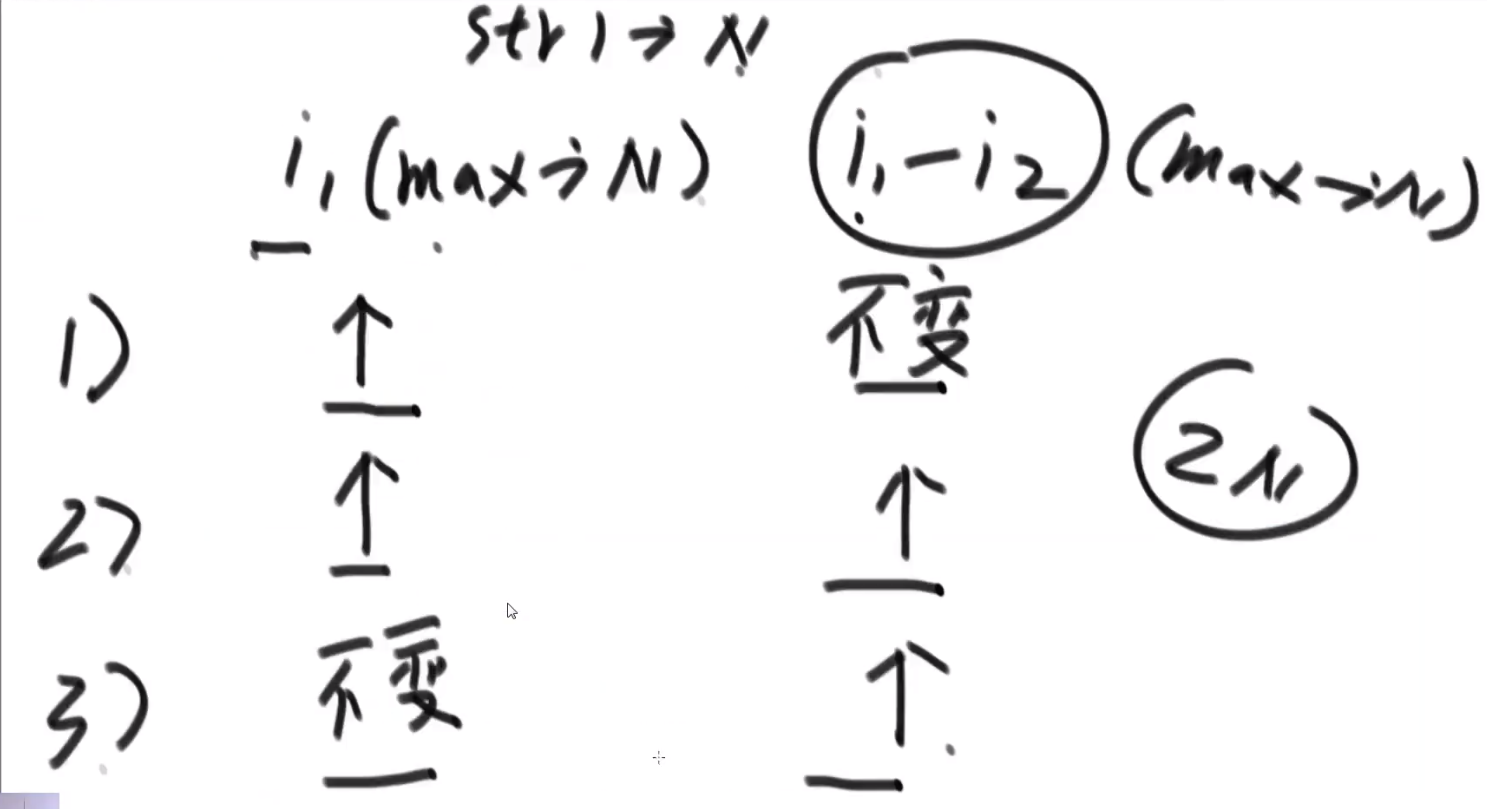 str1→N
i₁(max→N) i₁-i₂(max→N)
1) ↑ 不变
2N
2) ↑ ↑
3) 不变 ↑